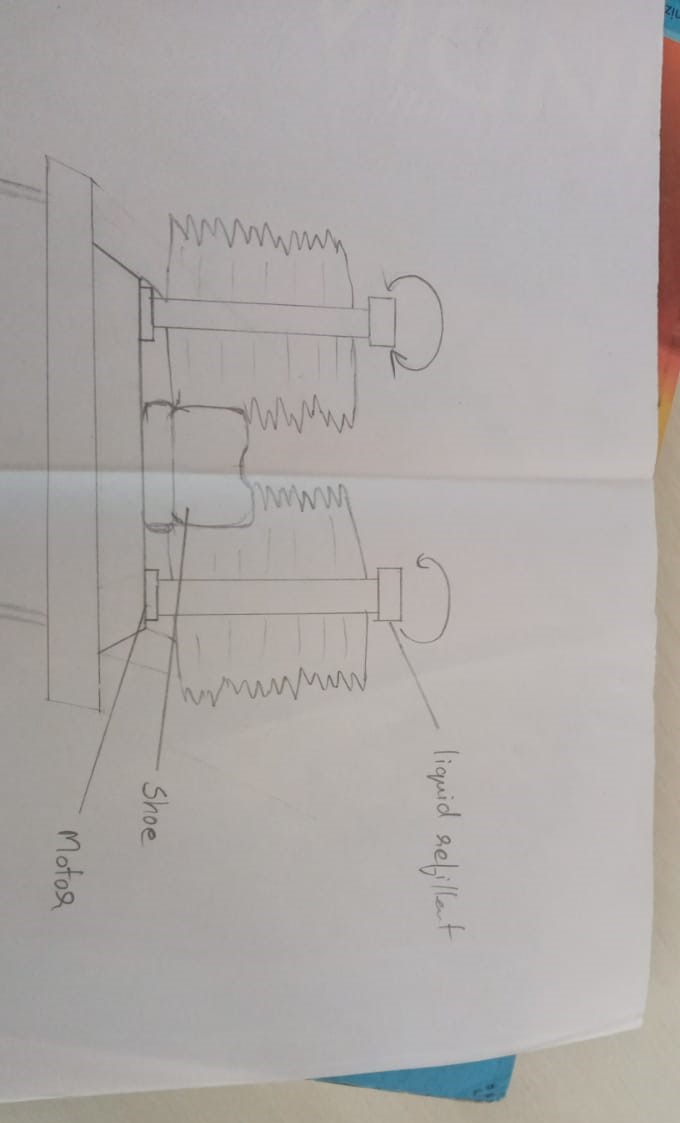 liquid refillent
Shoe
Motor